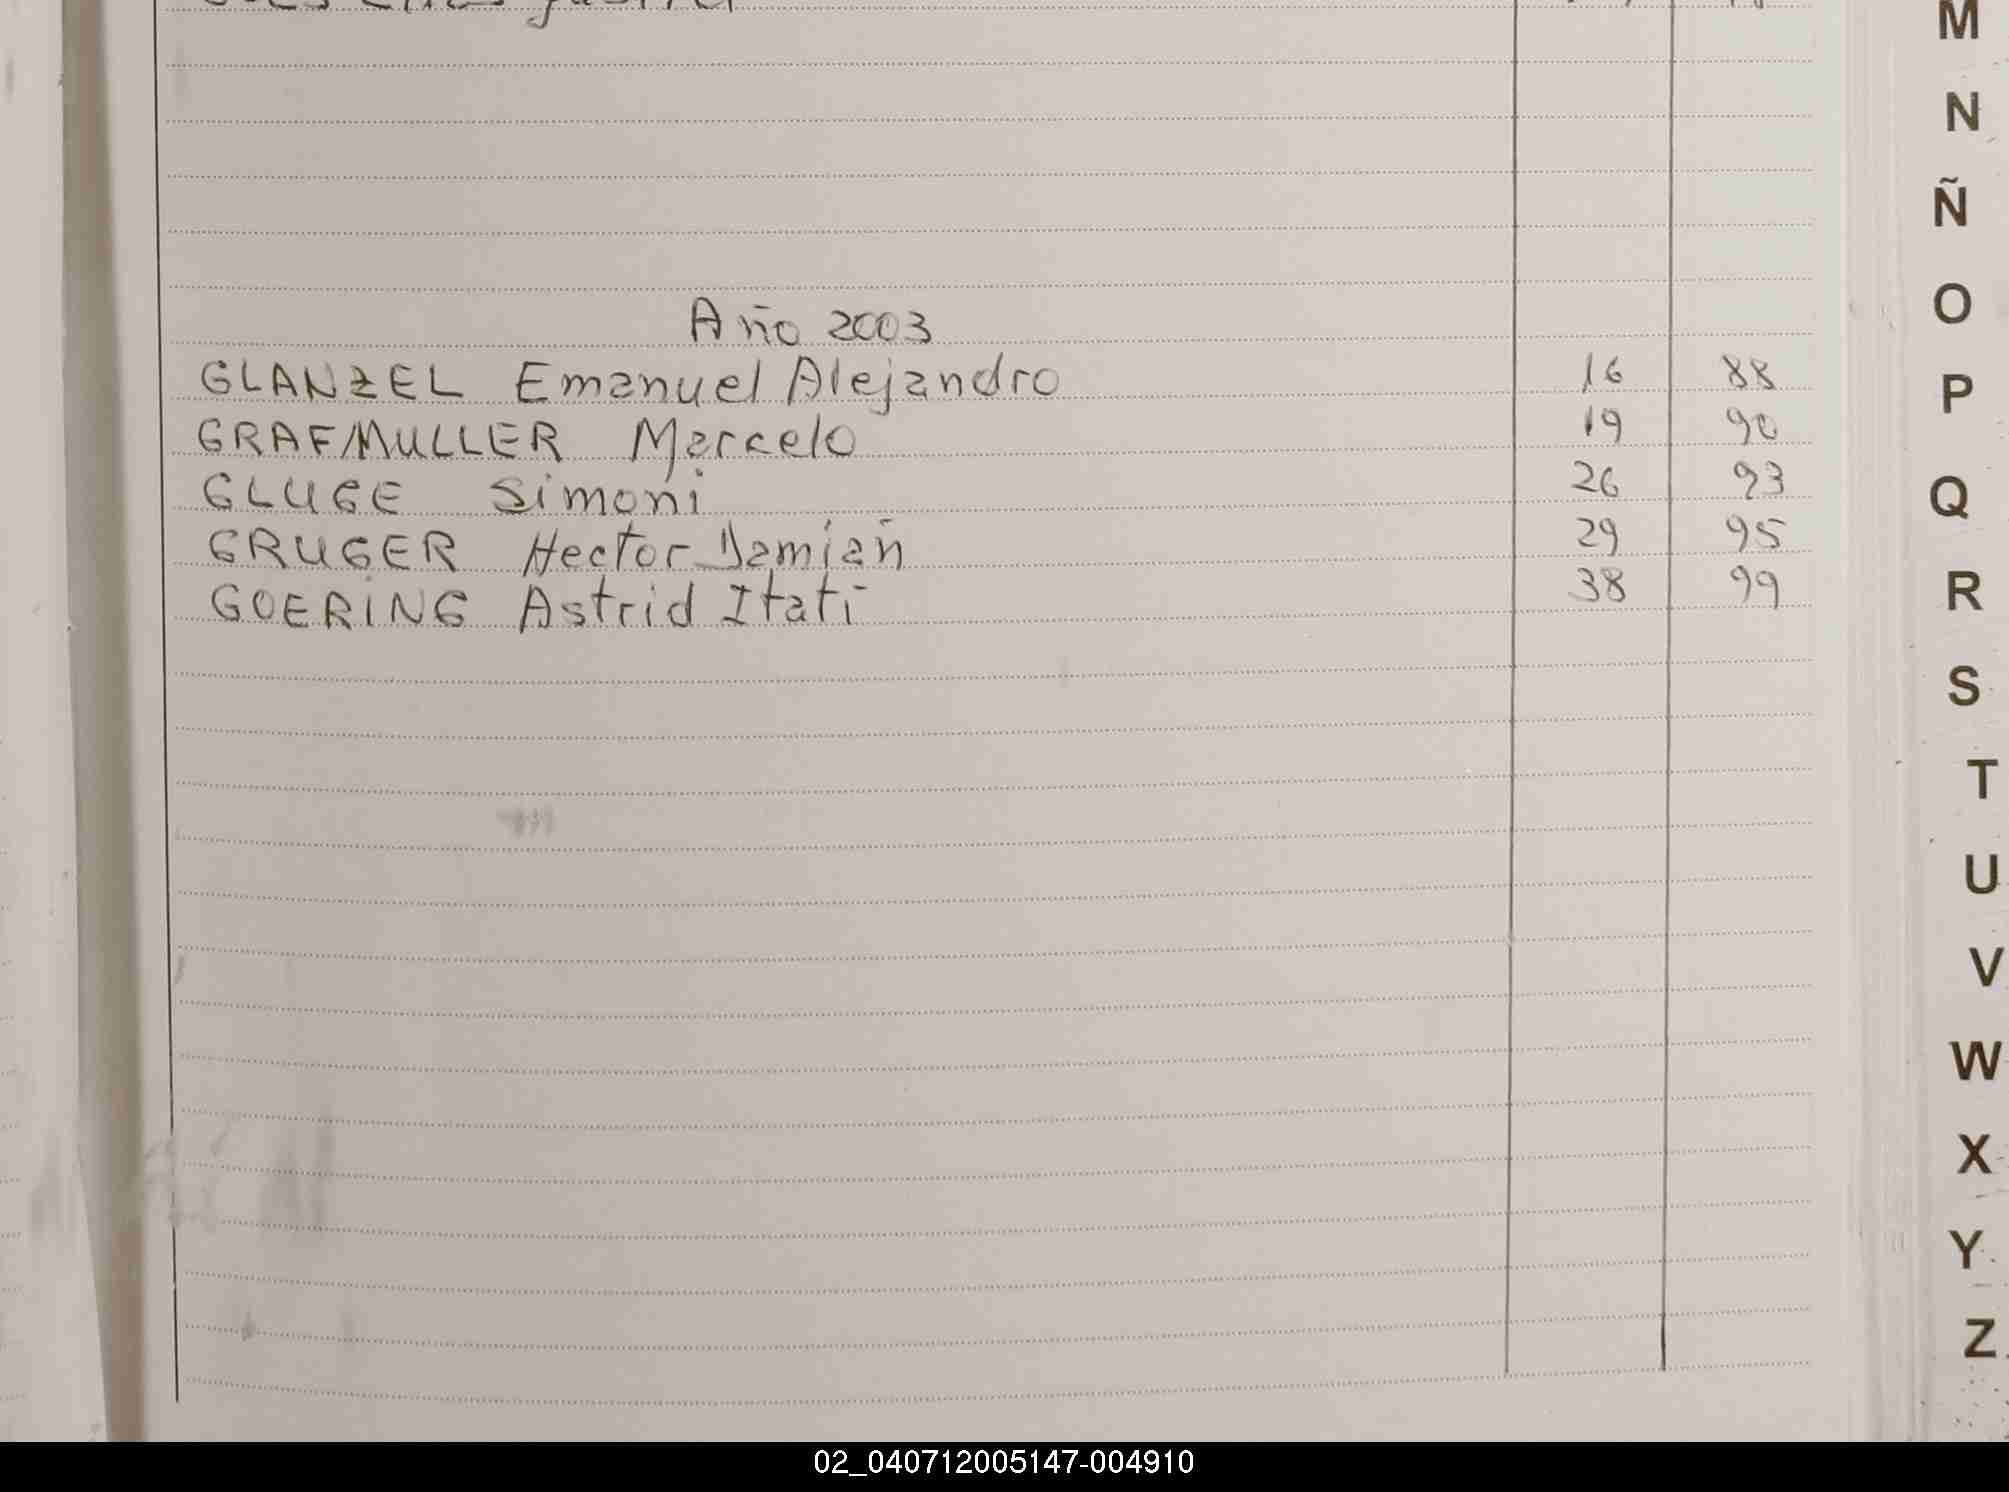 Año 2003
GLANZEL Emanuel Alejandro 16 88
GRAFMULLER Marcelo 19 90
GLUGE Simoni 26 93
GRUGER Hector Damián 29 95
GOERING Astrid Itatí 38 99
M
N
Ñ
O
P
Q
R
S
T
U
V
W
X
Y
Z
02_040712005147-004910